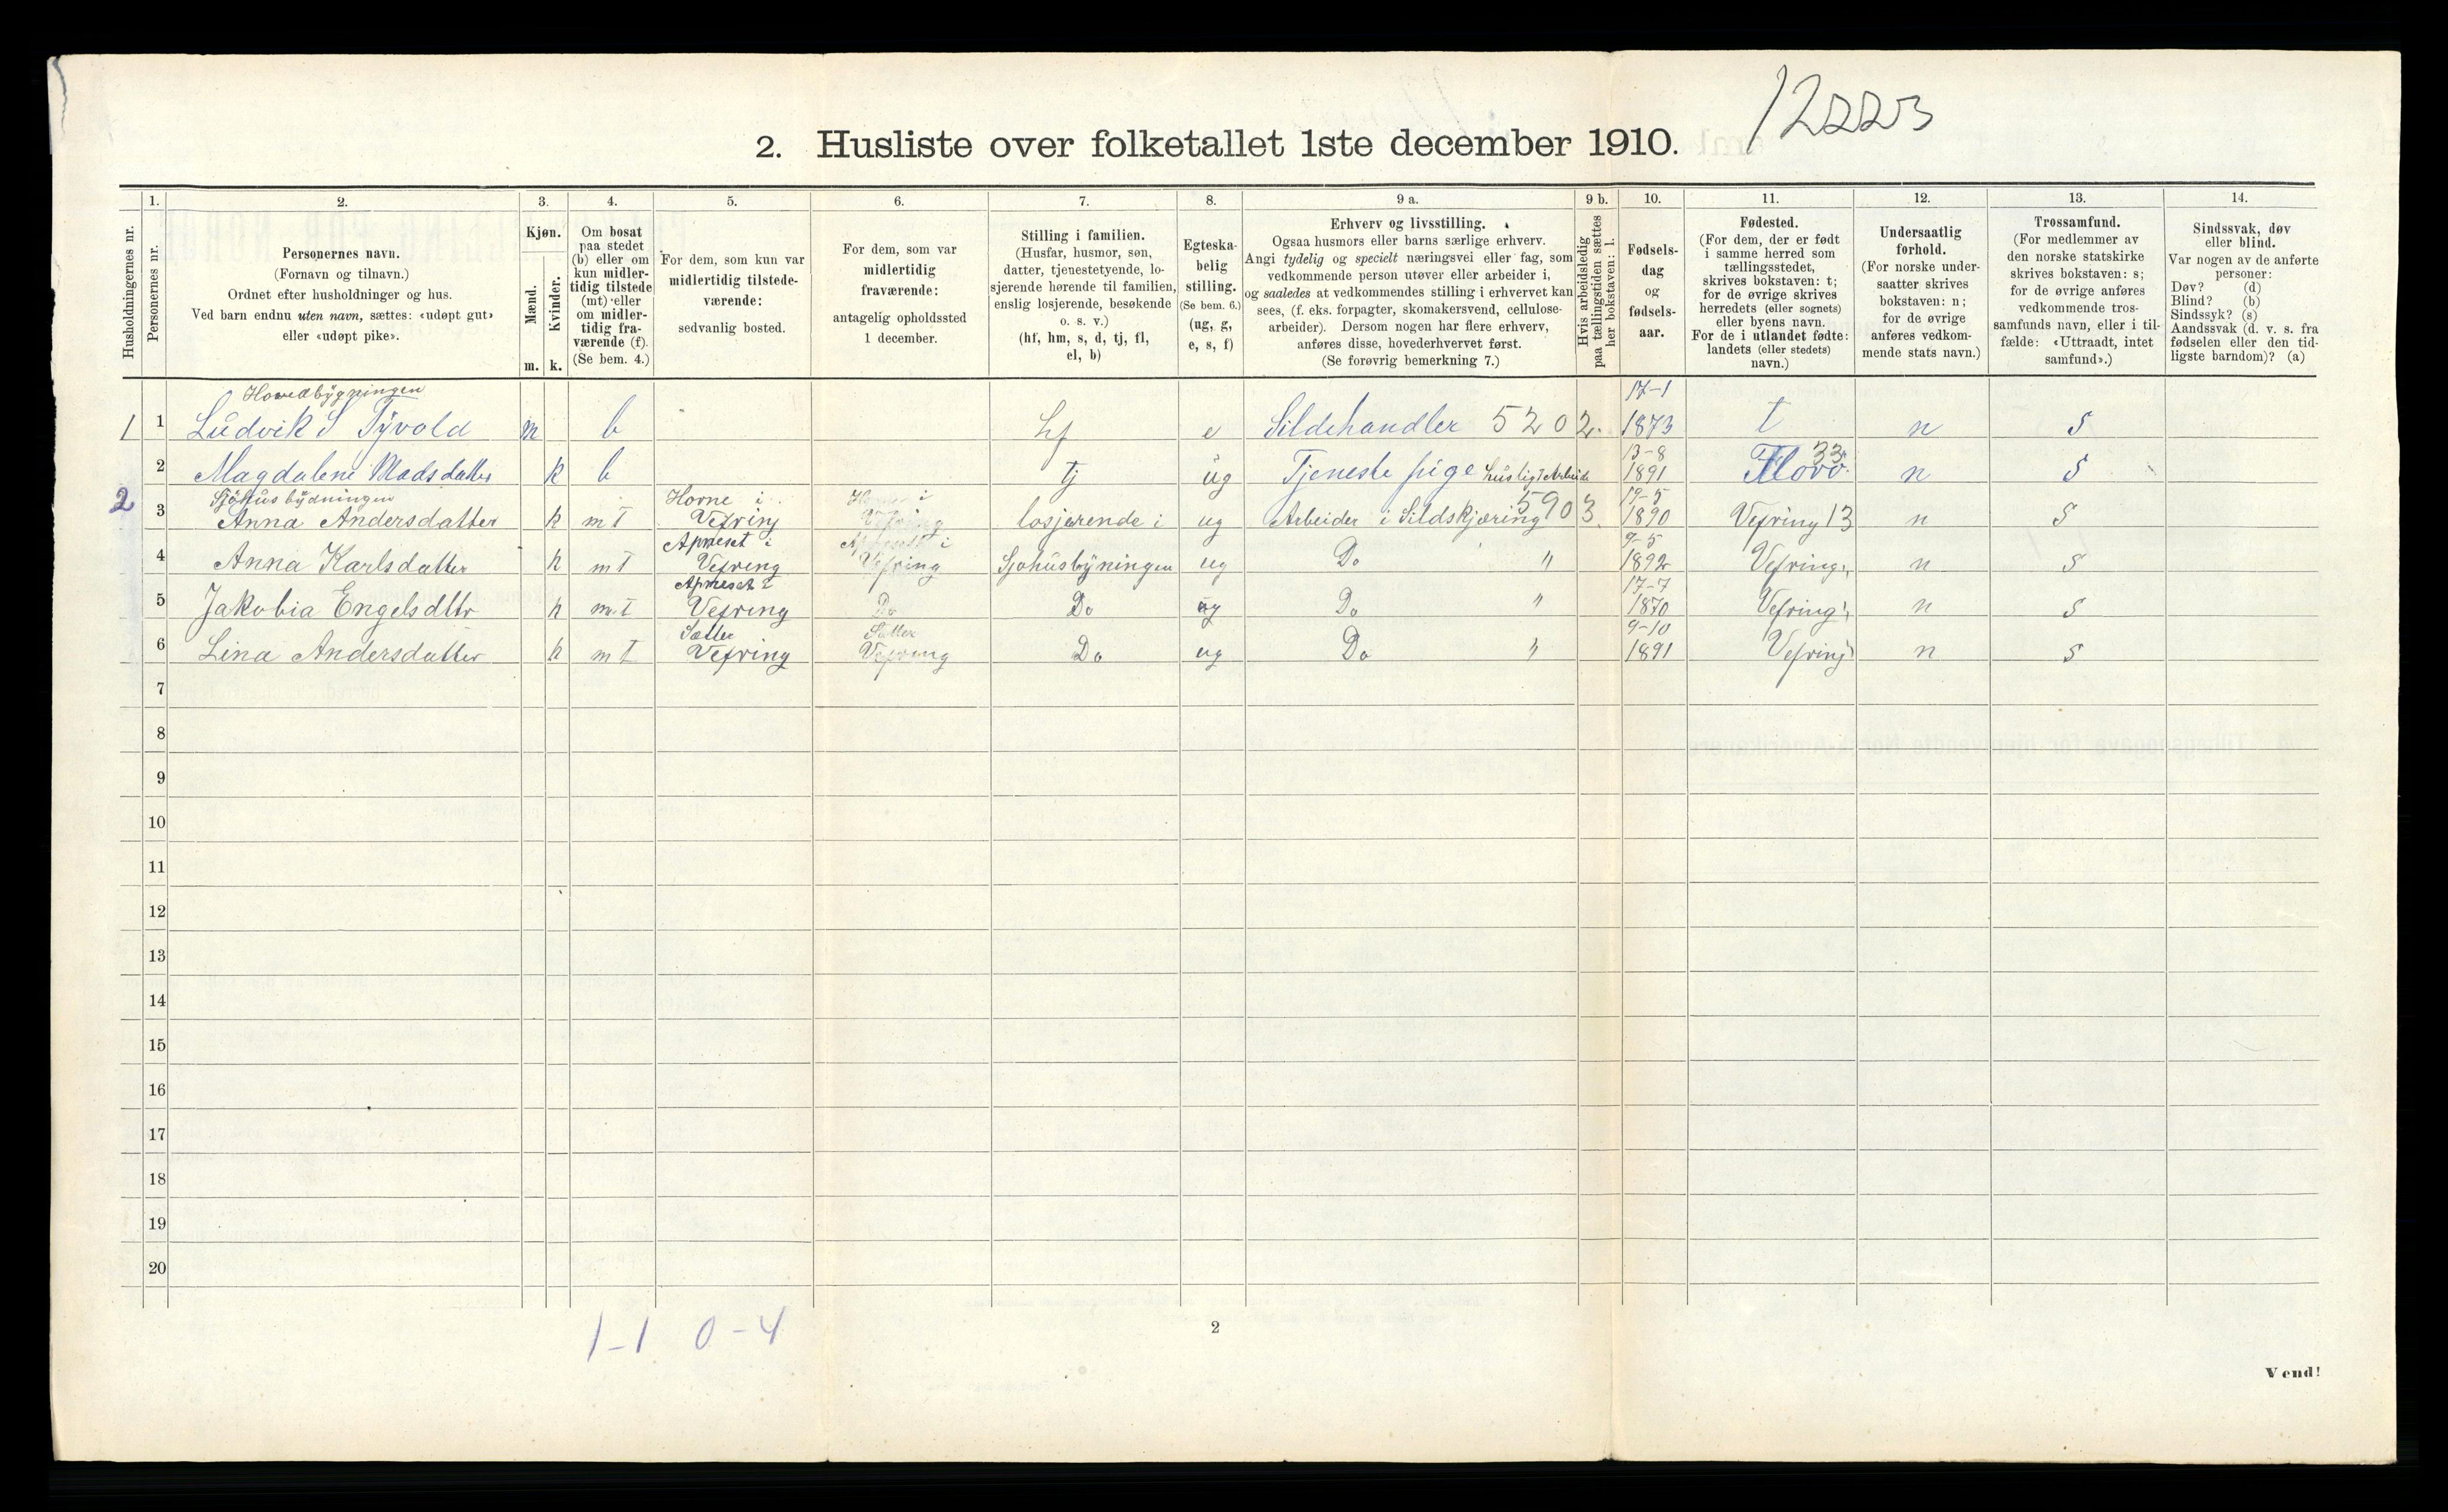 12223
2. Husliste over folketallet 1ste december 1910.
Husholdningernes nr.
1.
Personernes nr.
2.
Personernes navn.
(Fornavn og tilnavn.)
Ordnet efter husholdninger og hus.
Ved barn endnu uten navn, sættes: «udøpt gut»
eller «udøpt pike».
3.
Kjøn.
Mænd.
Kvinder.
m. k.
4.
Om bosat
paa stedet
(b) eller om
kun midler-
tidig tilstede
(mt) eller
om midler-
tidig fra-
værende (f).
(Se bem. 4.)
5.
For dem, som kun var
midlertidig tilstede-
værende:
sedvanlig bosted.
6.
For dem, som var
midlertidig
fraværende:
antagelig opholdssted
1 december.
7.
Stilling i familien.
(Husfar, husmor, søn,
datter, tjenestetyende, lo-
sjerende hørende til familien,
enslig losjerende, besøkende
o. s. v.)
(hf, hm, s, d, tj, fl,
el, b)
8.
Egteska-
belig
stilling.
(Se bem. 6.)
(ug, g,
e, s, f)
9 a.
Erhverv og livsstilling.
Ogsaa husmors eller barns særlige erhverv.
Angi tydelig og specielt næringsvei eller fag, som
vedkommende person utøver eller arbeider i,
og saaledes at vedkommendes stilling i erhvervet kan
sees, (f. eks. forpagter, skomakersvend, cellulose-
arbeider). Dersom nogen har flere erhverv,
anføres disse, hovederhvervet først.
(Se forøvrig bemerkning 7.)
9 b.
Hvis arbeidsledig
paa tællingstiden sættes
her bokstaven: l.
10.
Fødsels-
dag
og
fødsels-
aar.
11.
Fødested.
(For dem, der er født
i samme herred som
tællingsstedet,
skrives bokstaven: t;
for de øvrige skrives
herredets (eller sognets)
eller byens navn.
For de i utlandet fødte:
landets (eller stedets)
navn.)
12.
Undersaatlig
forhold.
(For norske under-
saatter skrives
bokstaven: n;
for de øvrige
anføres vedkom-
mende stats navn.)
13.
Trossamfund.
(For medlemmer av
den norske statskirke
skrives bokstaven: s;
for de øvrige anføres
vedkommende tros-
samfunds navn, eller i til-
fælde: «Uttraadt, intet
samfund».)
14.
Sindssvak, døv
eller blind.
Var nogen av de anførte
personer:
Døv? (d)
Blind? (b)
Sindssyk? (s)
Aandssvak (d. v. s. fra
fødselen eller den tid-
ligste barndom)? (a)
Hovedbygningen 17-1
1 1 Ludvik S Tyvold m b hf e Sildehandler 5202. 1873 t n s
13-8 33
2 Magdalene Madsdatter k b tj ug Tjeneste pige husligt Arbeide 1891 Florø n s
Sjöhusbydningen Horne i 19-5
2 3 Anna Andersdatter k mt Vefring Vefring losjerende i ug Arbeider i Sildskjæring 5903. 1890 Vefring 13 n s
Apneset i 9-5
4 Anna Karlsdatter k mt Vefring Vefring Sjohusbyningen ug Do " 1892 Vefring n s
Apneset i 17-7
5 Jakobia Engelsdttr k mt Vefring Do Do ug Do " 1870 Vefring n s
Sætter Sætter 9-10
6 Lina Andersdatter k mt Vefring Vefring Do ug Do " 1891 Vefring n s
7
8
9
10
11
12
13
14
15
16
17
18
19
20
1-1 0-4
2
Vend!